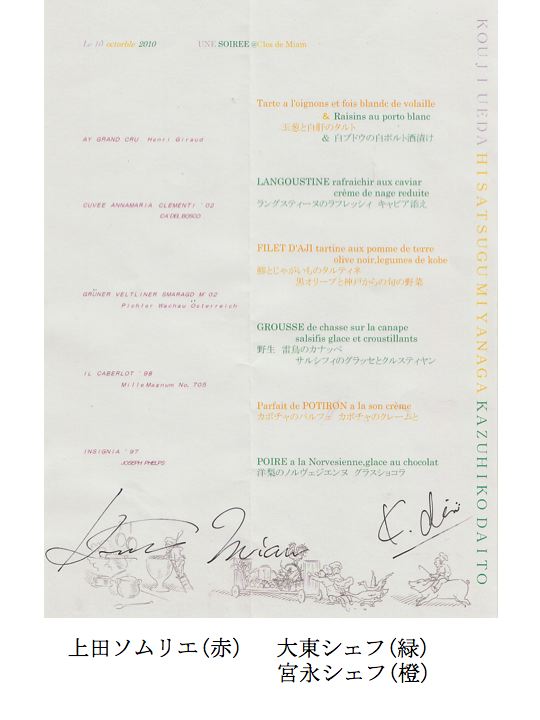 Le 10 octorble 2010
UNE SOIREE @Clos de Miam
Tarte a l'oignons et fois blandc de volaille
& Raisins au porto blanc
玉葱と白肝のタルト
& 白ブドウの白ポルト酒漬け
AY GRAND CRU Henri Giraud
LANGOUSTINE rafraichir aux caviar
crème de nage reduite
ラングスティーヌのラフレッシィ キャビア添え
CUVEE ANNAMARIA CLEMENTI '02
CA'DEL BOSCO
FILET D'AJI tartine aux pomme de terre
olive noir,legumes de kobe
鯵とじゃがいものタルティネ
黒オリーブと神戸からの旬の野菜
GRÜNER VELTLINER SMARAGD M '02
Pichler Wachau Österreich
GROUSSE de chasse sur la canape
salsifis glace et croustillants
野生 雷鳥のカナッペ
サルシフィのグラッセとクルスティヤン
IL CABERLOT '98
Mille Magnum No. 705
Parfait de POTIRON a la son crème
カボチャのパルフェ カボチャのクレームと
INSIGNIA '97
JOSEPH PHELPS
POIRE a la Norvesienne,glace au chocolat
洋梨のノルヴェジエンヌ グラスショコラ
KOUJI UEDA HISATSUGU MIYANAGA KAZUHIKO DAITO
Miam
上田ソムリエ(赤) 大東シェフ(緑)
宮永シェフ(橙)